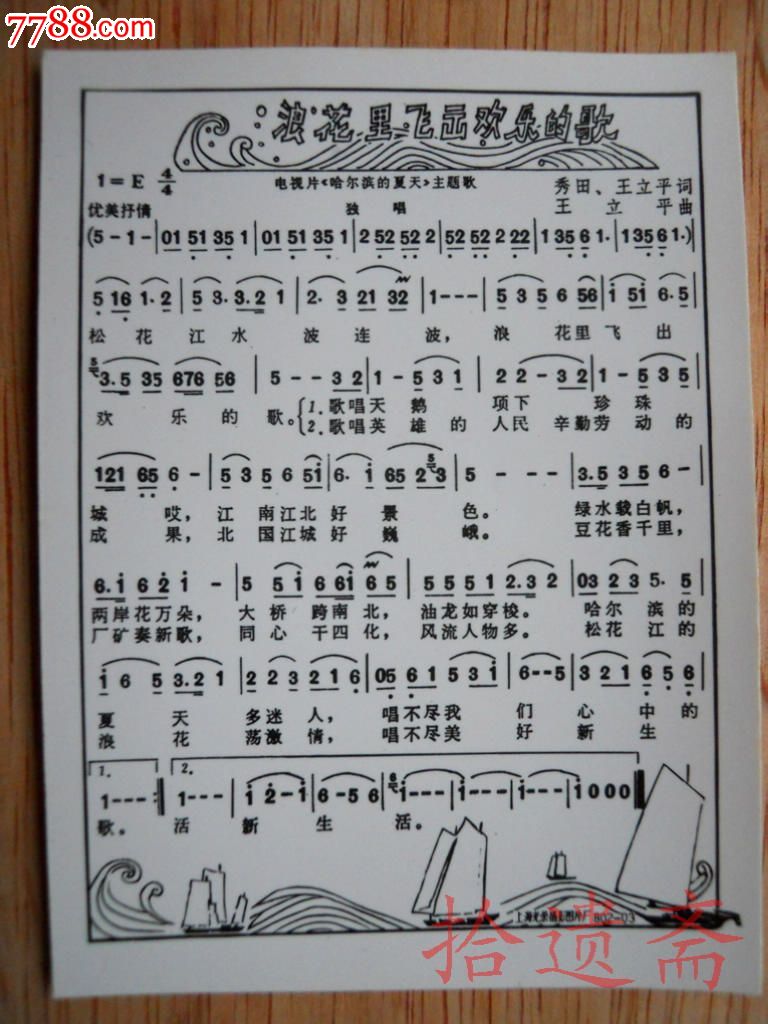 7788.com
浪花里飞出欢乐的歌
1=E 4/4
电视片《哈尔滨的夏天》主题歌
秀田、王立平词
优美抒情
独唱
王立平曲
(5-1- | 01 51 35 1 | 01 51 35 1 | 2 52 52 2 | 52 52 2 22 | 1 35 6 1· | 1 35 6 1·)
5 16 1·2 | 5 3·3·2 1 | 2·3 21 32 | 1--- | 5 3 5 6 56 | 1 51 6·5
松花江水波连波，浪花里飞出
3·5 35 676 56 | 5--32 | 1-5 31 | 22-32 | 1-5 35
欢乐的歌。
1.歌唱天鹅项下珍珠
2.歌唱英雄的人民辛勤劳动的
121 65 6- | 5 3 5 6 51 | 6·1 65 2 3 | 5-- | 3·5 35 6-
城哎，江南江北好景色。绿水载白帆，
成果，北国江城好巍峨。豆花香千里，
6·1 6 2 1- | 5 51 6 61 65 | 55 51 2·3 2 | 03 23 5·5
两岸花万朵，大桥跨南北，油龙如穿梭。哈尔滨的
厂矿奏新歌，同心干四化，风流人物多。松花江的
1 6 5 3·2 1 | 2 23 21 6 | 05 61 53 1 | 6--5 | 3 21 65 6
夏天多迷人，唱不尽我们心中的
浪花荡激情，唱不尽美好新生
1. 2.
1--- :| 1--- | 1 2-1 | 6-56 | 1--- | 1--- | 1--- | 1000
歌。活新生活。
802-03
拾遗斋